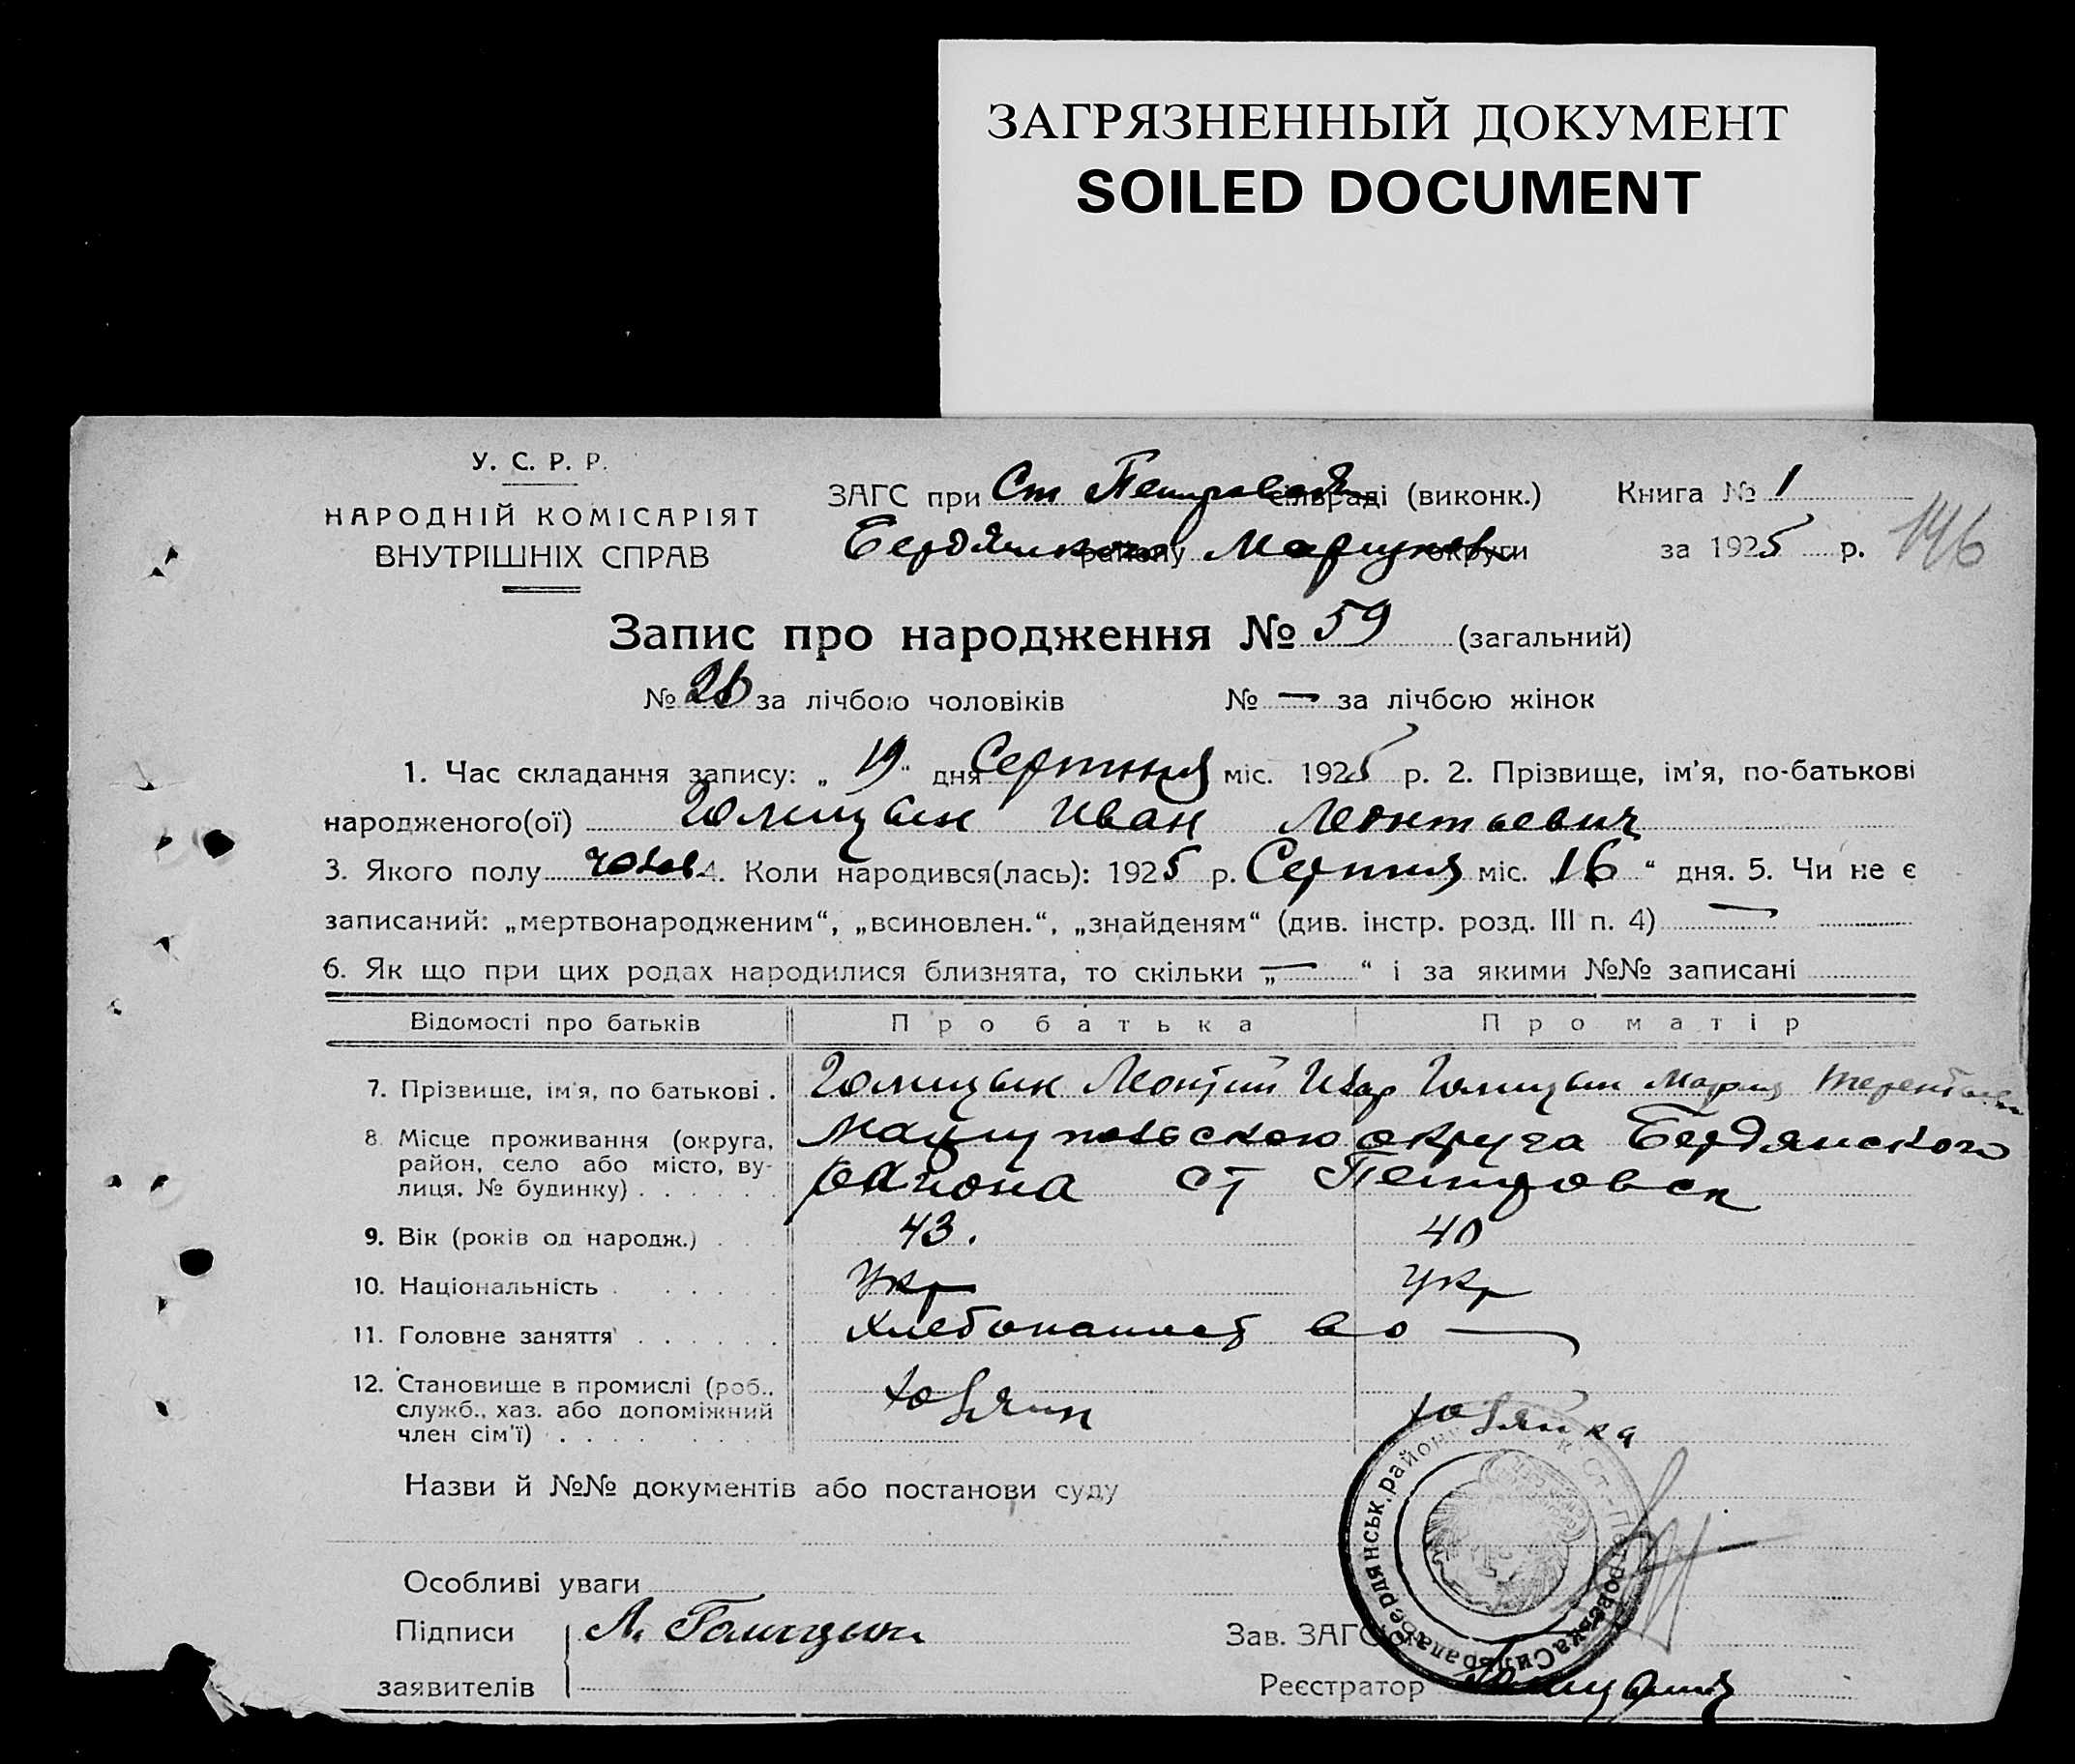 ЗАГРЯЗНЕННЫЙ ДОКУМЕНТ
SOILED DOCUMENT
У. С. Р. Р.
НАРОДНІЙ КОМІСАРІЯТ
ВНУТРІШНІХ СПРАВ
ЗАГС при Ст Петровской сільраді (виконк.) Книга № 1
Бердянского району Мариупол округи за 1925 р. 146
Запис про народження № 59 (загальний)
№ 26 за лічбою чоловіків № — за лічбою жінок
1. Час складання запису: „ 19 “ дня Серпня міс. 1925 р. 2. Прізвище, ім'я, по-батькові
народженого(ої) Голицын Иван Леонтьевич
3. Якого полу чолов 4. Коли народився(лась): 1925 р. Серпня міс. „16 “ дня. 5. Чи не є
записаний: „мертвонародженим“, „всиновлен.“, „знайденям“ (див. інстр. розд. III п. 4) —
6. Як що при цих родах народилися близнята, то скільки „ — “ і за якими №№ записані
Відомості про батьків Про батька Про матір
7. Прізвище, ім'я, по батькові . Голицын Леонтий Ивар Голицын Мария Терентьев
8. Місце проживання (округа, район, село або місто, вулиця, № будинку) . Мариупольского округа Бердянского
района ст Петровск
9. Вік (років од народж.) 43. 40
10. Національність . Укр Укр
11. Головне заняття Хлебопашест во —
12. Становище в промислі (роб., служб., хаз. або допоміжний член сім'ї) . Хозяин Хозяйка
Назви й №№ документів або постанови суду
Особливі уваги
Підписи А. Голицын
заявителів
Зав. ЗАГС'ом
Реєстратор
Бердянськ. район Ст.-Петровська Сильрада